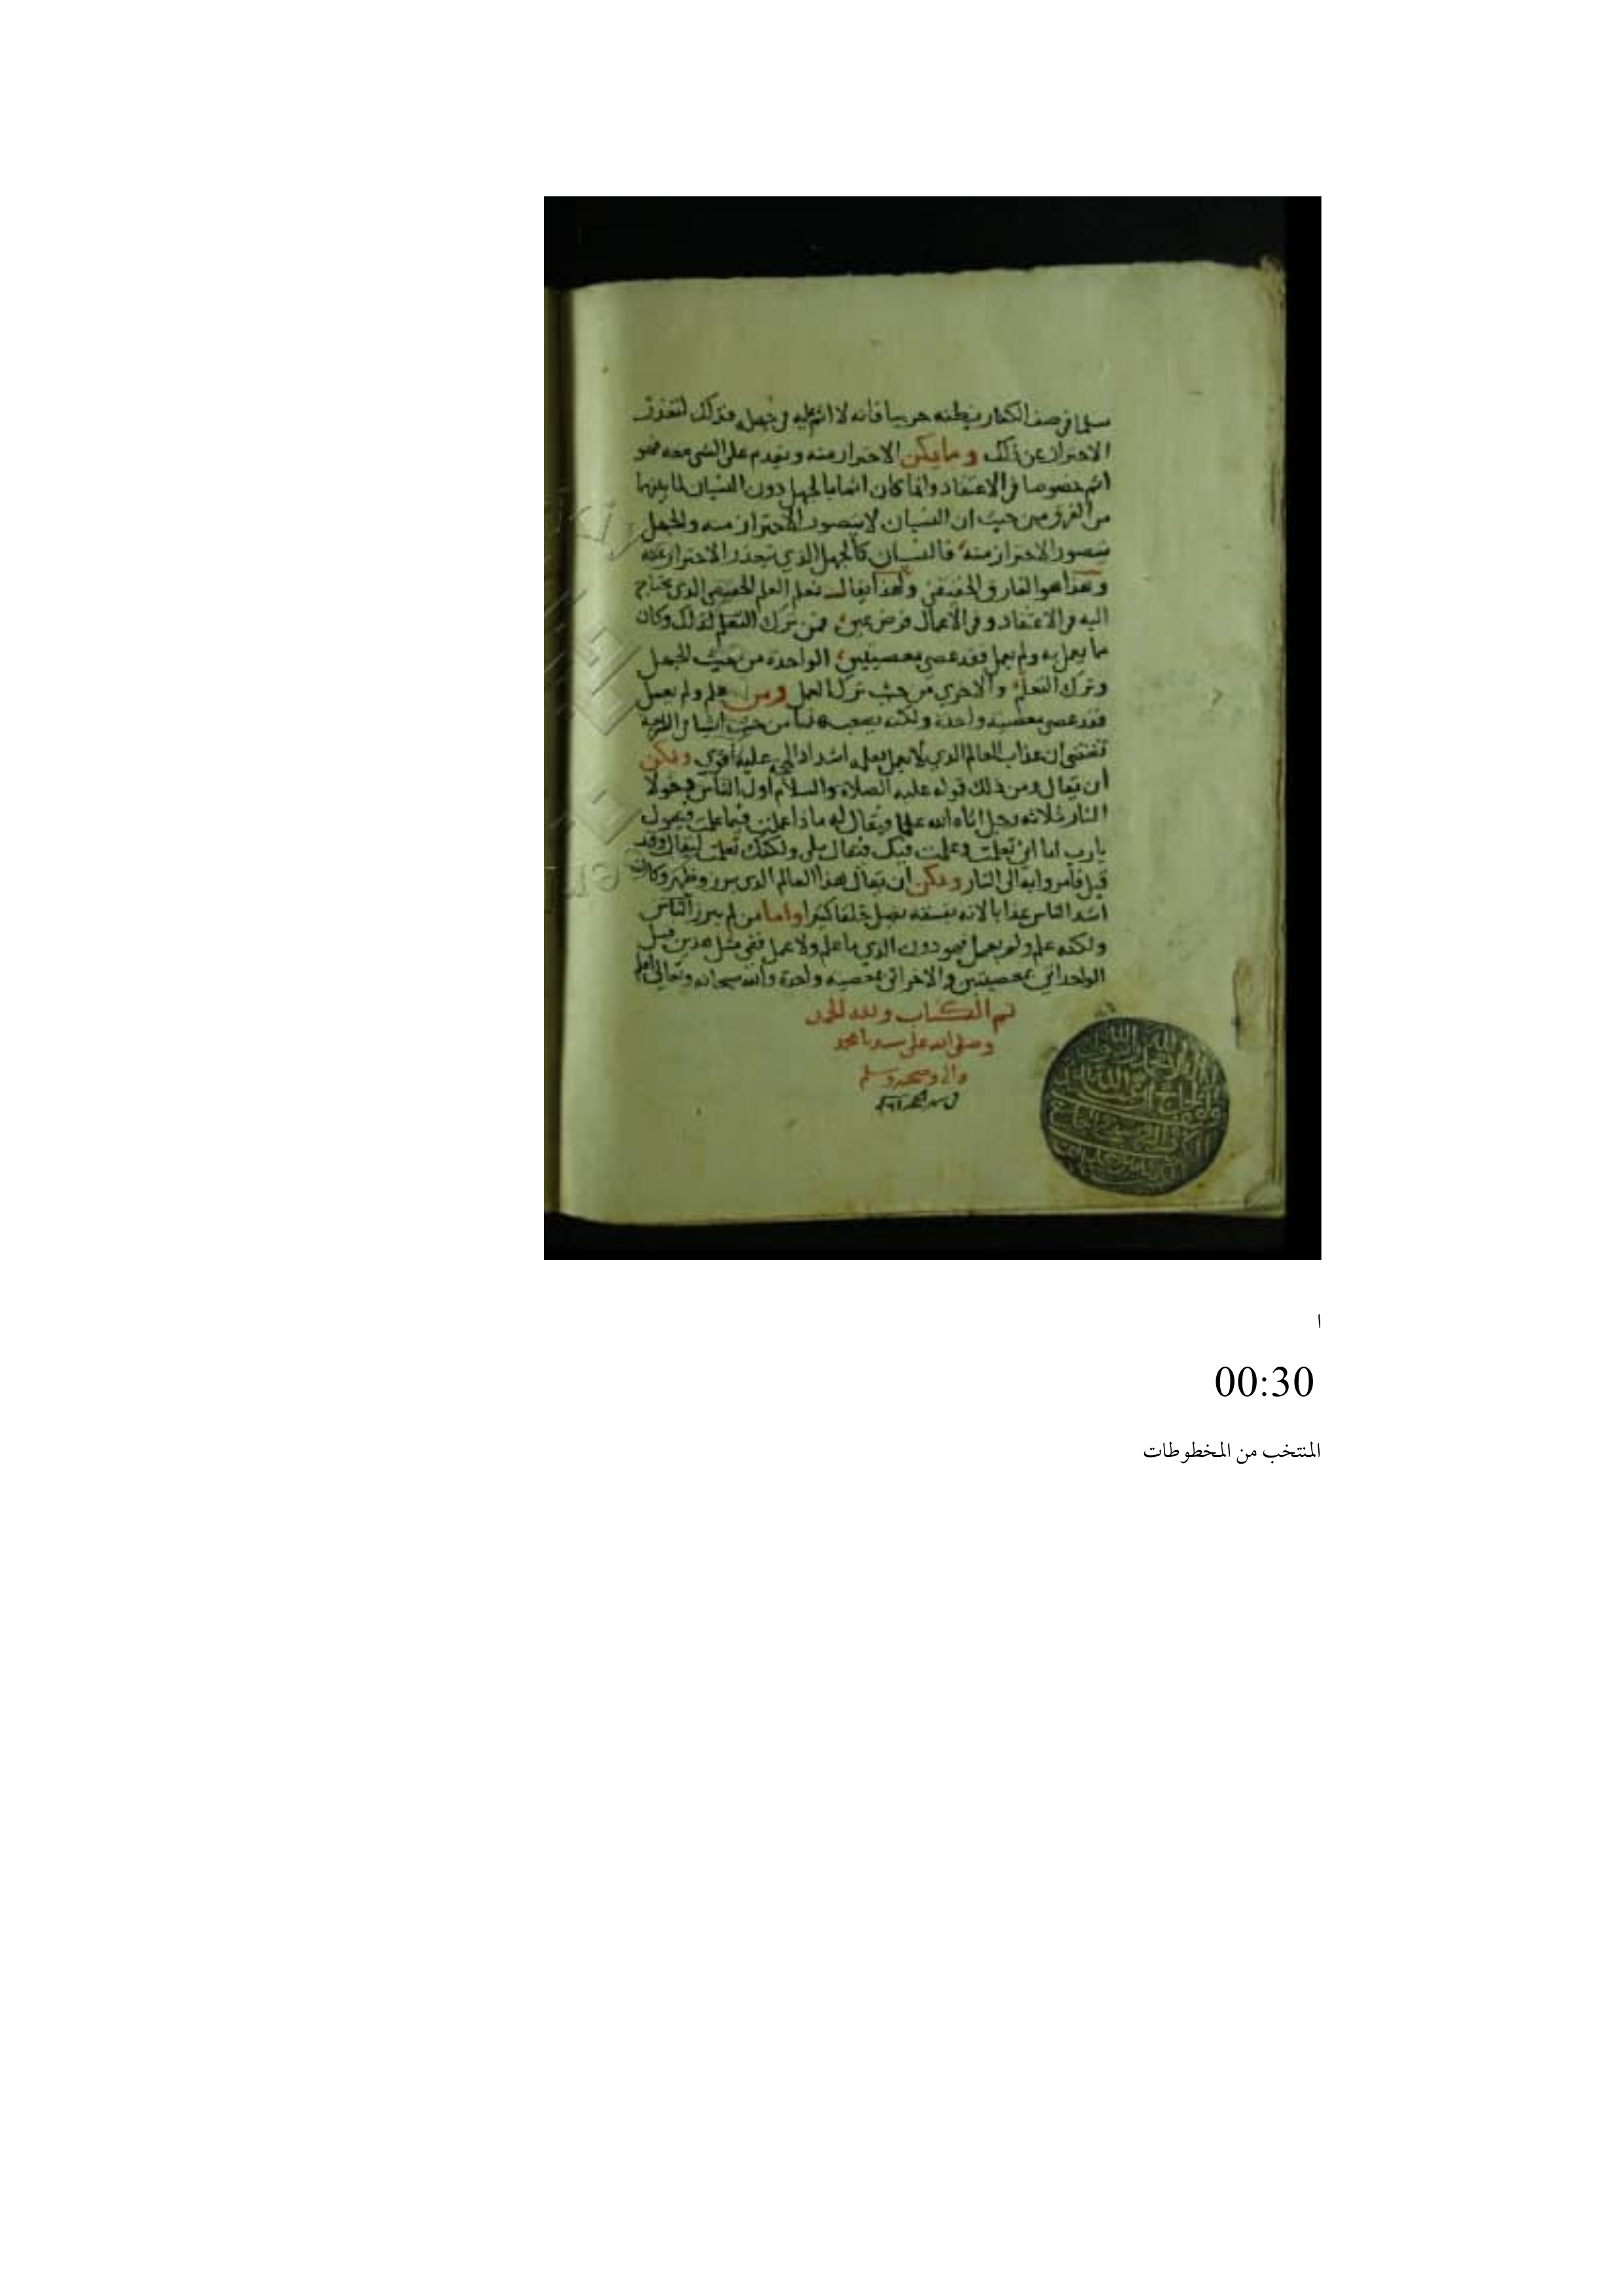 مسلما في صف الكفار يظنه حربيا فانه لا اثم عليه في جهله فذلك لتعذر
الاحتراز عن ذلك وما يمكن الاحتراز منه ويقدم على الشي معه فهو
اثم خصوصا في الاعتقاد وانما كان اثما بالجهل دون النسيان لما بينهما
من الفرق من حيث ان النسيان لا يتصور الاحتراز منه والجهل
يتصور الاحتراز منه فالنسيان كالجهل الذي يتعذر الاحتراز عنه
وهذا هو الفارق ولهذا يقال تعلم العلم الذي يحتاج
اليه في الاعتقاد وفي الاعمال فرض عين فمن ترك التعلم لذلك وكان
مما يعمل به ولم يعمل فقد عصى معصيتين الواحدة من حيث الجهل
وترك التعلم والاخرى من حيث ترك العمل ومن علم ولم يعمل
فقد عصى معصية واحدة ولكنه
تقتضى ان عذاب العالم الذي لا يعمل بعلمه اشد اذ عليه اقوى ويمكن
ان يقال ومن ذلك قوله عليه الصلاة والسلام اول الناس دخولا
النار ثلاثة رجل اتاه الله علما ويقال له ماذا عملت فيما علمت فيقول
يارب تعلمت وعلمت فيك فيقال بلى ولكنك تعلمت ليقال وقد
قيل فامروا به الى النار ويمكن ان يقال هذا العالم الذي برز وظهر وكان
اشد الناس عذابا لانه بفسقه يضل خلقا كثيرا واما من لم يبرز للناس
ولكنه علم ولم يعمل فهو دون الذي ما علم ولا عمل ففي مثل هذين قيل
الواحد اتى بمعصيتين والاخر اتى بمعصيه واحدة والله سبحانه وتعالى اعلم
تم الكتاب ولله الحمد
وصلى الله على سيدنا محمد
واله وصحبه وسلم
ا
00:30
المنتخب من المخطوطات